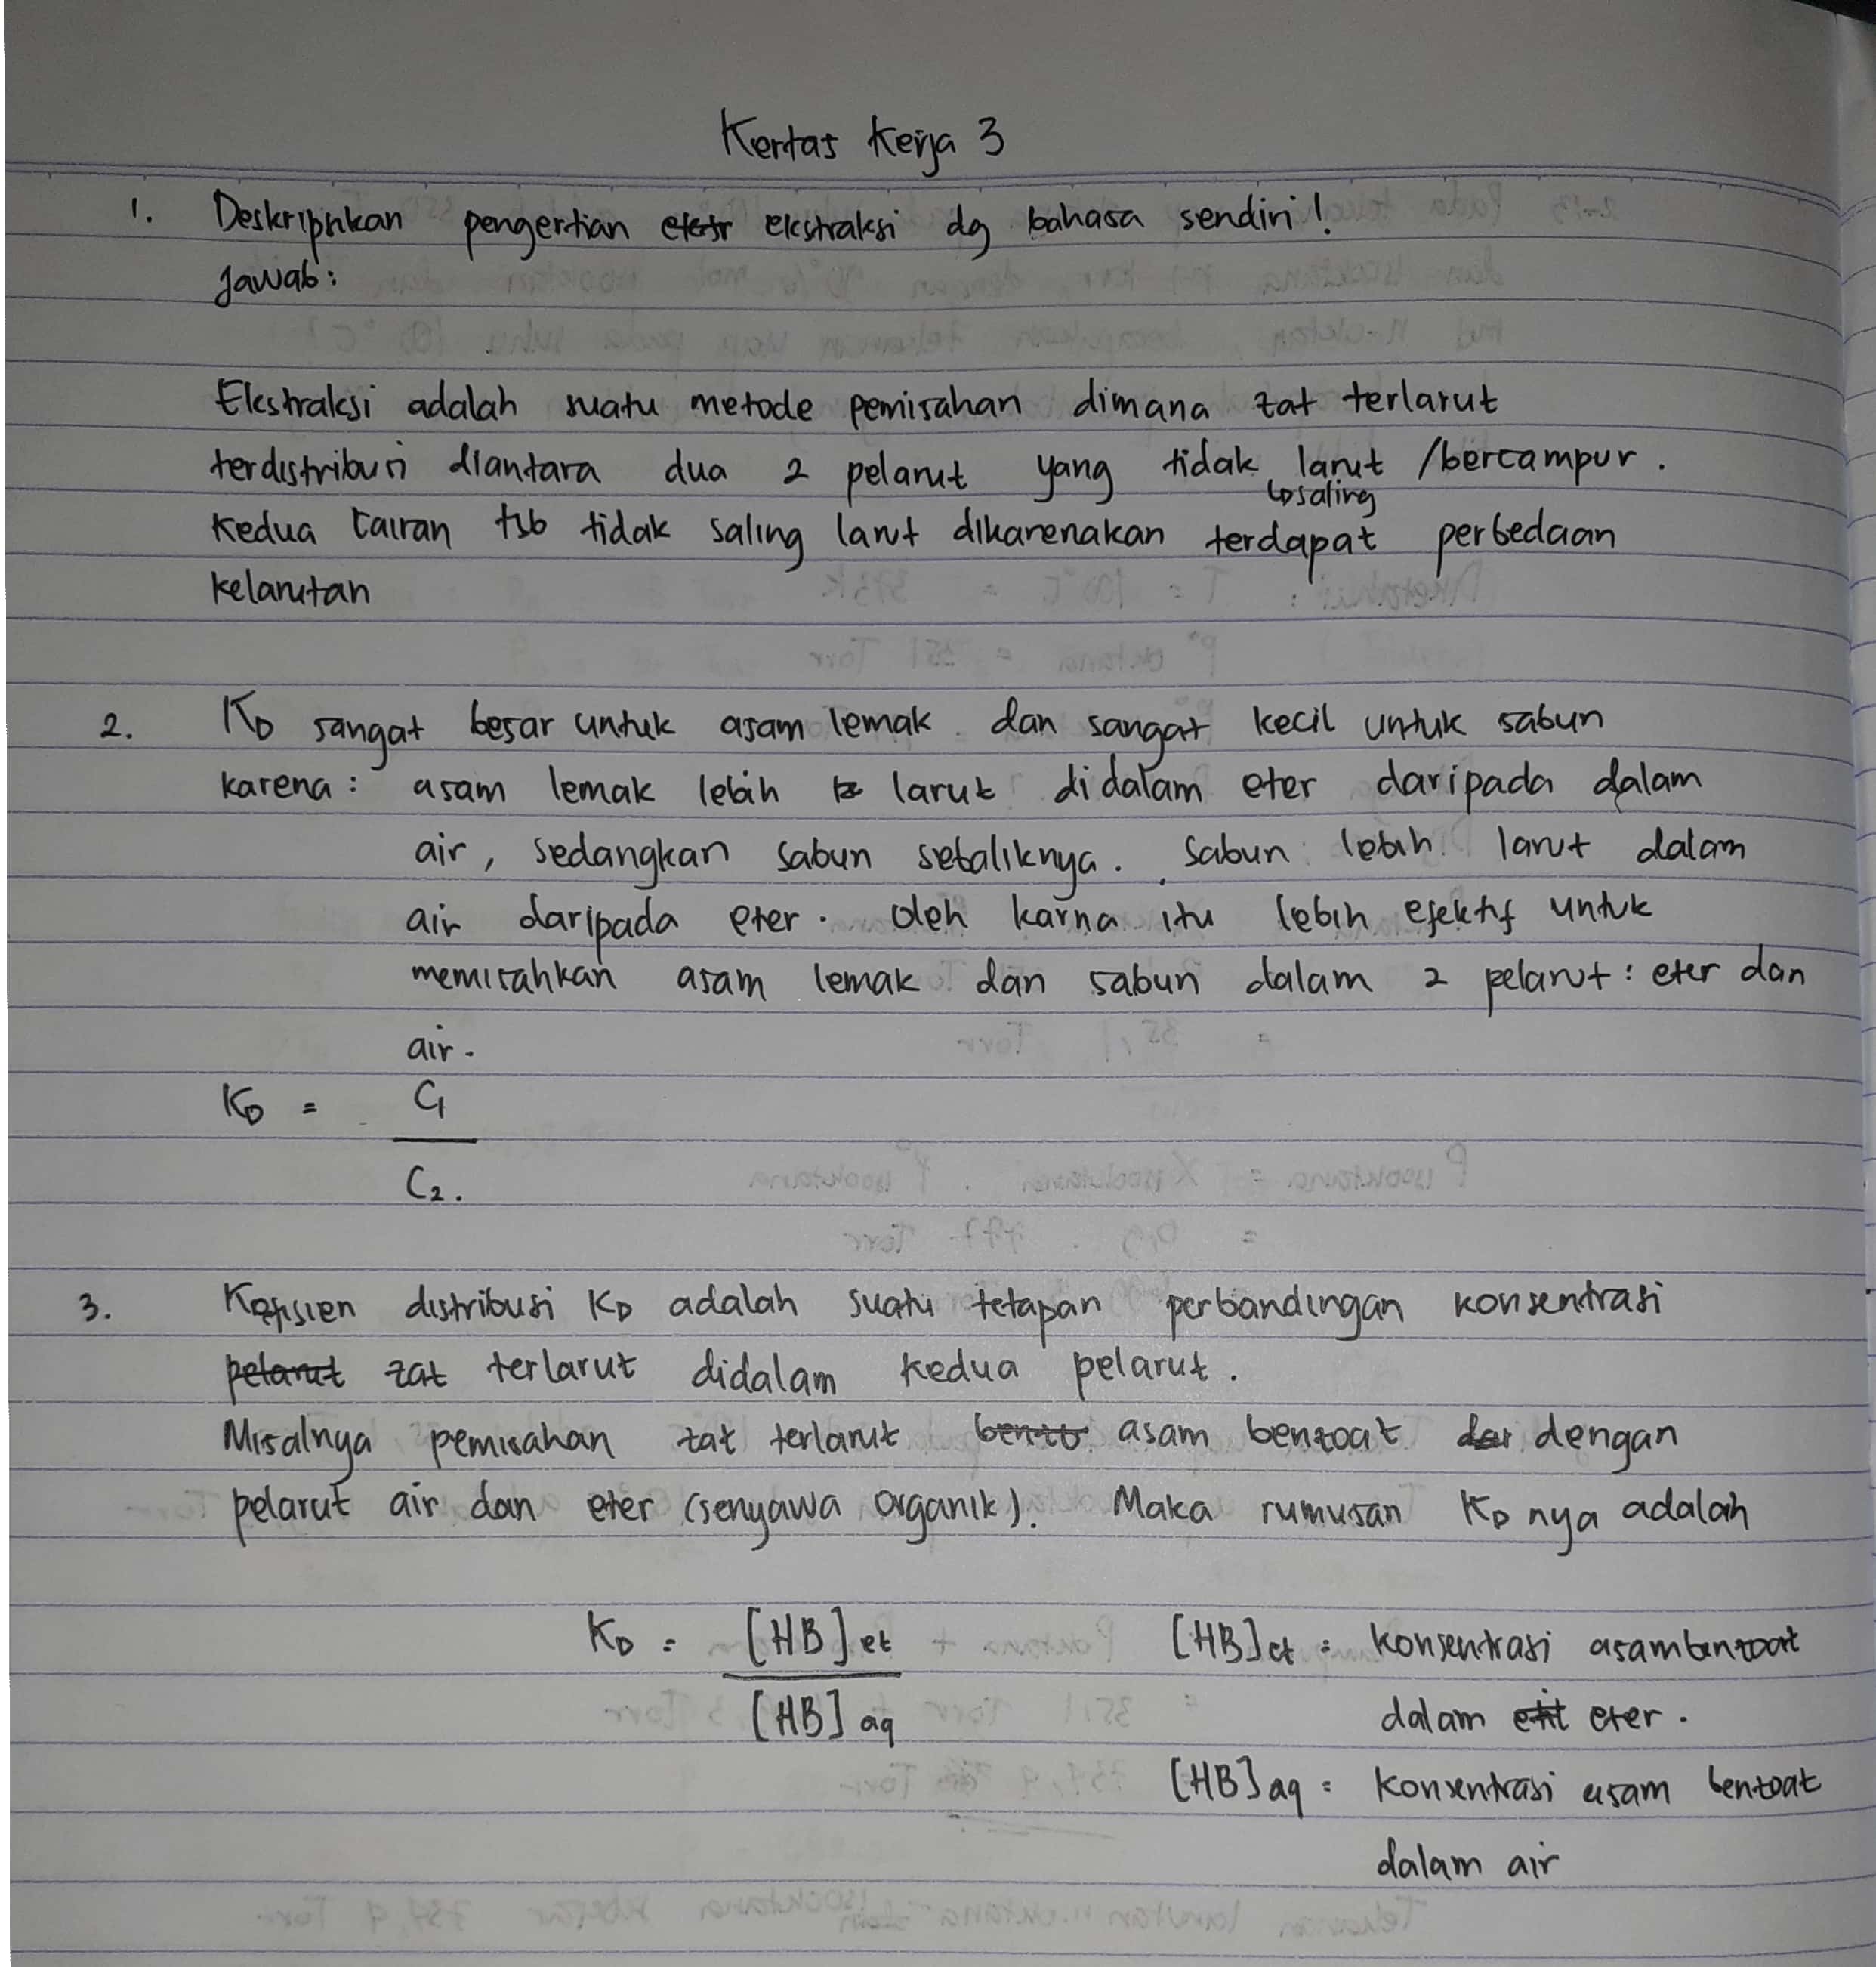 Kertas Kerja 3
1. Deskripsikan pengertian ekstraksi dg bahasa sendiri!
Jawab:
Ekstraksi adalah suatu metode pemisahan dimana zat terlarut
terdistribusi diantara dua 2 pelarut yang tidak larut /bercampur.
↳saling
Kedua cairan tsb tidak saling larut dikarenakan terdapat perbedaan
kelarutan
2. KD sangat besar untuk asam lemak dan sangat kecil untuk sabun
karena: asam lemak lebih larut didalam eter daripada dalam
air, sedangkan sabun sebaliknya. Sabun lebih larut dalam
air daripada eter. Oleh karna itu lebih efektif untuk
memisahkan asam lemak dan sabun dalam 2 pelarut: eter dan
air.
KD = C1
C2.
3. Koefisien distribusi KD adalah suatu tetapan perbandingan konsentrasi
pelarut zat terlarut didalam kedua pelarut.
Misalnya pemisahan zat terlarut asam benzoat dengan
pelarut air dan eter (senyawa organik). Maka rumusan KD nya adalah
KD = [HB]et [HB]et = konsentrasi asam benzoat
[HB]aq dalam eter.
[HB]aq = konsentrasi asam benzoat
dalam air